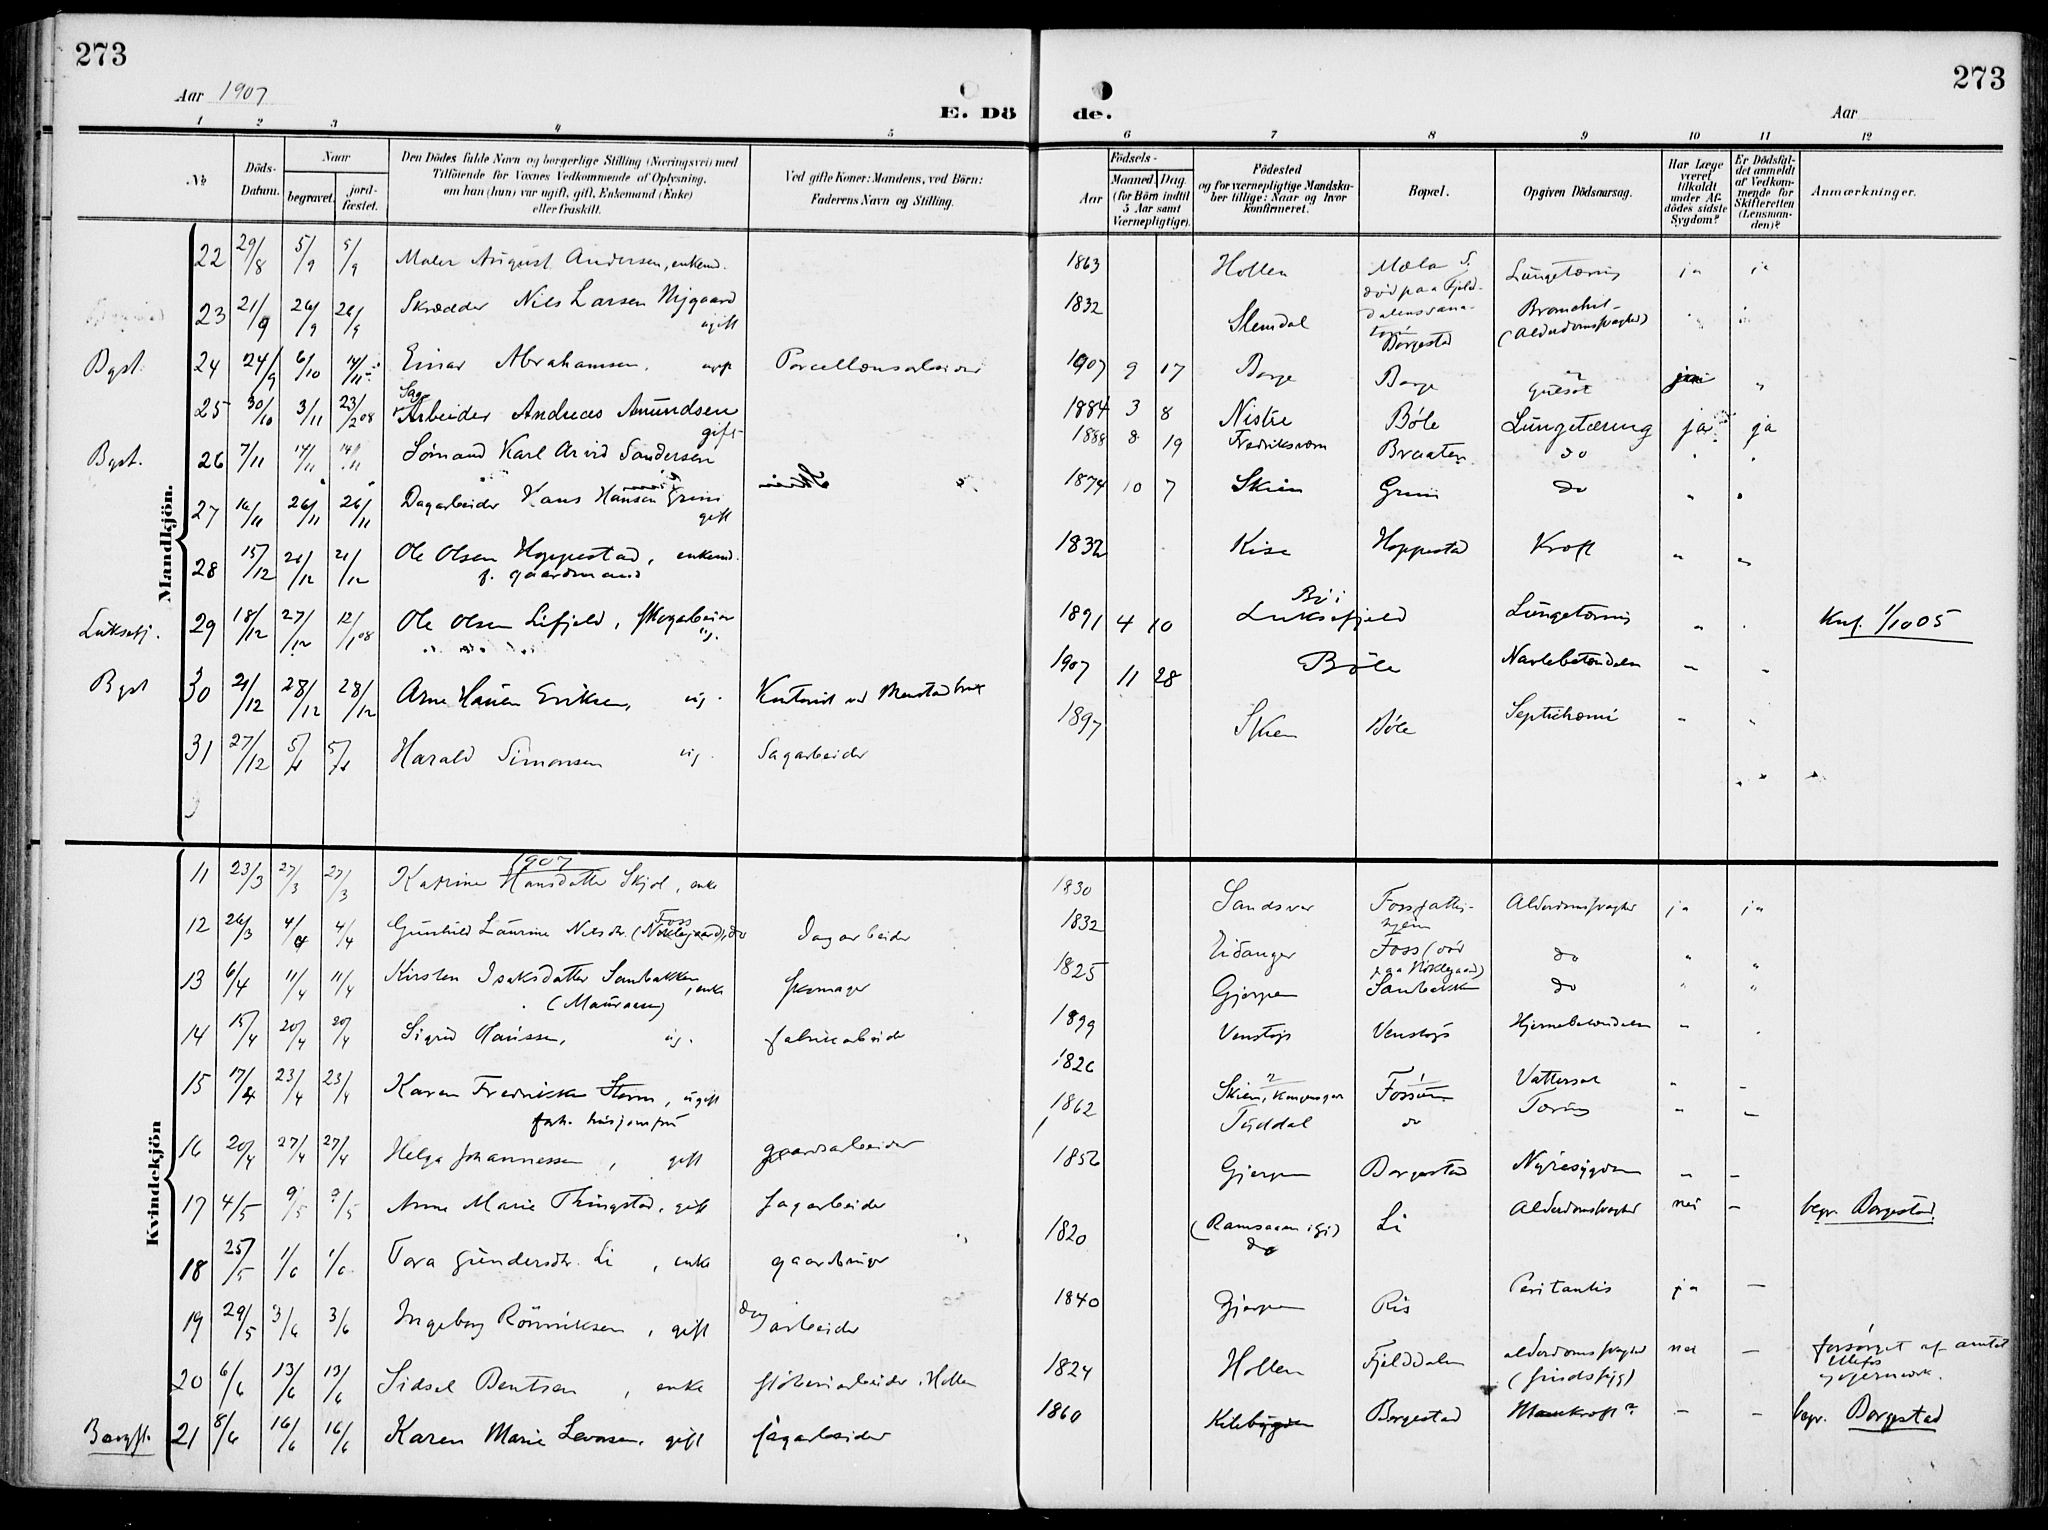 273
273
Aar 1907
E. Dö de.
Aar
1 2 3 4 5 6 7 8 9 10 11 12
No
Döds-Datum.
Naar
begravet.
jord-fæstet.
Den Dödes fulde Navn og borgerlige Stilling (Næringsvei) med Tilföiende for Voxnes Vedkommende af Oplysning, om han (hun) var ugift, gift, Enkemand (Enke) eller fraskilt.
Ved gifte Koner: Mandens, ved Börn: Faderens Navn og Stilling.
Födsels-
Aar
Maaned. Dag.
(for Börn indtil 5 Aar samt Værnepligtige).
Födested og for værnepligtige Mandskaber tillige: Naar og hvor Konfirmeret.
Bopæl.
Opgiven Dödsaarsag.
Har Læge været tilkaldt under Afdödes sidste Sygdom?
Er Dödsfaldet anmeldt af Vedkommende for Skifteretten (Lensmanden)?
Anmærkninger.
Mandkjön.
22 29/8 5/9 5/9 Maler August Andersen, enkem. 1863 Hollen Mæla S. død paa Fjeld-dalens sana- Lungetæring ja ja
23 21/9 26/9 26/9 Skrædder Nils Larsen Nygaard ugift 1832 Slemdal Borgestad (Alderdomssvaghed)
Bgst. 24 24/9 6/10 Einar Abrahamsen, Porcellænsarbeider 1907 9 17 Borge Borge
25 30/10 3/11 23/2 08 Sag Arbeider Andreas Amundsen gift 1884 3 8 Nistre Böle Lungetæring ja ja
Bgst. 26 7/11 14/11 14/11 Sömand Karl Arvid Sandersen 1888 8 19 Fredriksværn Braaten do
27 16/11 26/11 26/11 Dagarbeider Hans Hansen Grini gift 1874 10 7 Skien Grini do
28 15/12 21/12 21/12 Ole Olsen Hoppestad, enkem. f. gaardmand 1832 Kise Hoppestad Kræft
Luksefj. 29 18/12 27/12 12/1 08 Ole Olsen Lifjeld, skogarbeider ug. 1891 4 10 Bö i Luksefjeld Lungetæring Knf. 1/10 05
Bgst 30 21/12 28/12 28/12 Arne Hauen Eriksen, ug. Kontorist ved Menstad brug 1907 11 28 Böle Navlebetændelse
31 27/12 5/1 5/1 Harald Simonsen ug. Sagarbeider 1897 Skien Böle Septichæmi
Kvindekjön
1907
11 23/3 27/3 27/3 Katrine Hansdatter Skjol, enke 1830 Sandsvær Foss fattig-hjem Alderdomssvaghed ja ja
12 26/3 4/4 4/4 Gunhild Laurine Nilsdtr. (Nöklegaard) Foss, do Dagarbeider 1832 Eidanger Foss (död paa Nöklegaard) do
13 6/4 11/4 11/4 Kirsten Isaksdatter Sanbakken, enke Skomager 1825 Gjerpen Sanbakken do
14 15/4 20/4 20/4 Sigrid Hansen, ug. fabrikarbeider 1899 Venstøp Venstøp Hjernebetændelse
15 17/4 23/4 23/4 Karen Fredrikke Storm, ugift forh. husjomfru 1826 Skien, Kongensgt Fossum Vattersot
16 20/4 27/4 27/4 Helga Johannessen, gift gaardsarbeider 1862 Tuddal do Tæring
17 4/5 9/5 9/5 Anne Marie Thingstad, gift Sagarbeider 1856 Gjerpen Borgestad Nyresygdom begr. Borgestad.
18 25/5 1/6 1/6 Tora Gundersdtr. Li, enke gaardbruger 1820 do Li Alderdomssvaghed nei
19 29/5 3/6 3/6 Ingeborg Rönniksen, gift dagarbeider 1840 Gjerpen Ris Peritonitis ja
20 6/6 13/6 13/6 Sidsel Bentsen, enke Støberiarbeider, Hollen 1824 Hollen Fjelddalen alderdomssvaghed (sindssyg) nei forsørget af amtet Ulefos og Jernværk.
Borgst. 21 8/6 16/6 16/6 Karen Marie Larsen, gift sagarbeider 1860 Kilebygden Borgestad Mavekræft? begr. Borgestad